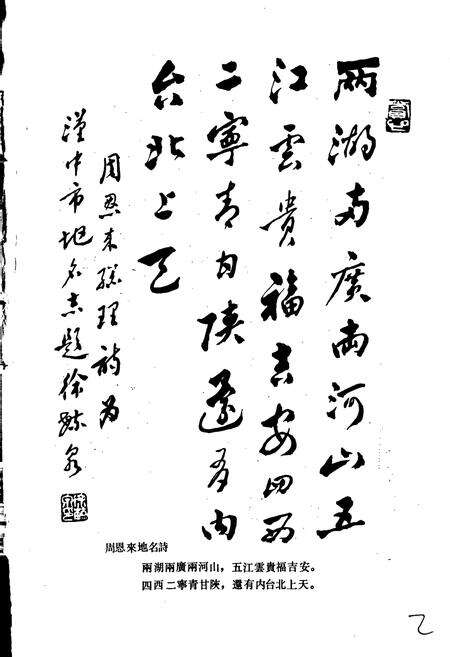 兩湖兩廣兩河山五
江雲貴福吉安四西
二寧青甘陝還有内
台北上天
周恩来總理詩为
漢中市地名志題徐毓泉
周恩來地名詩
兩湖兩廣兩河山，五江雲貴福吉安。
四西二寧青甘陝，還有内台北上天。